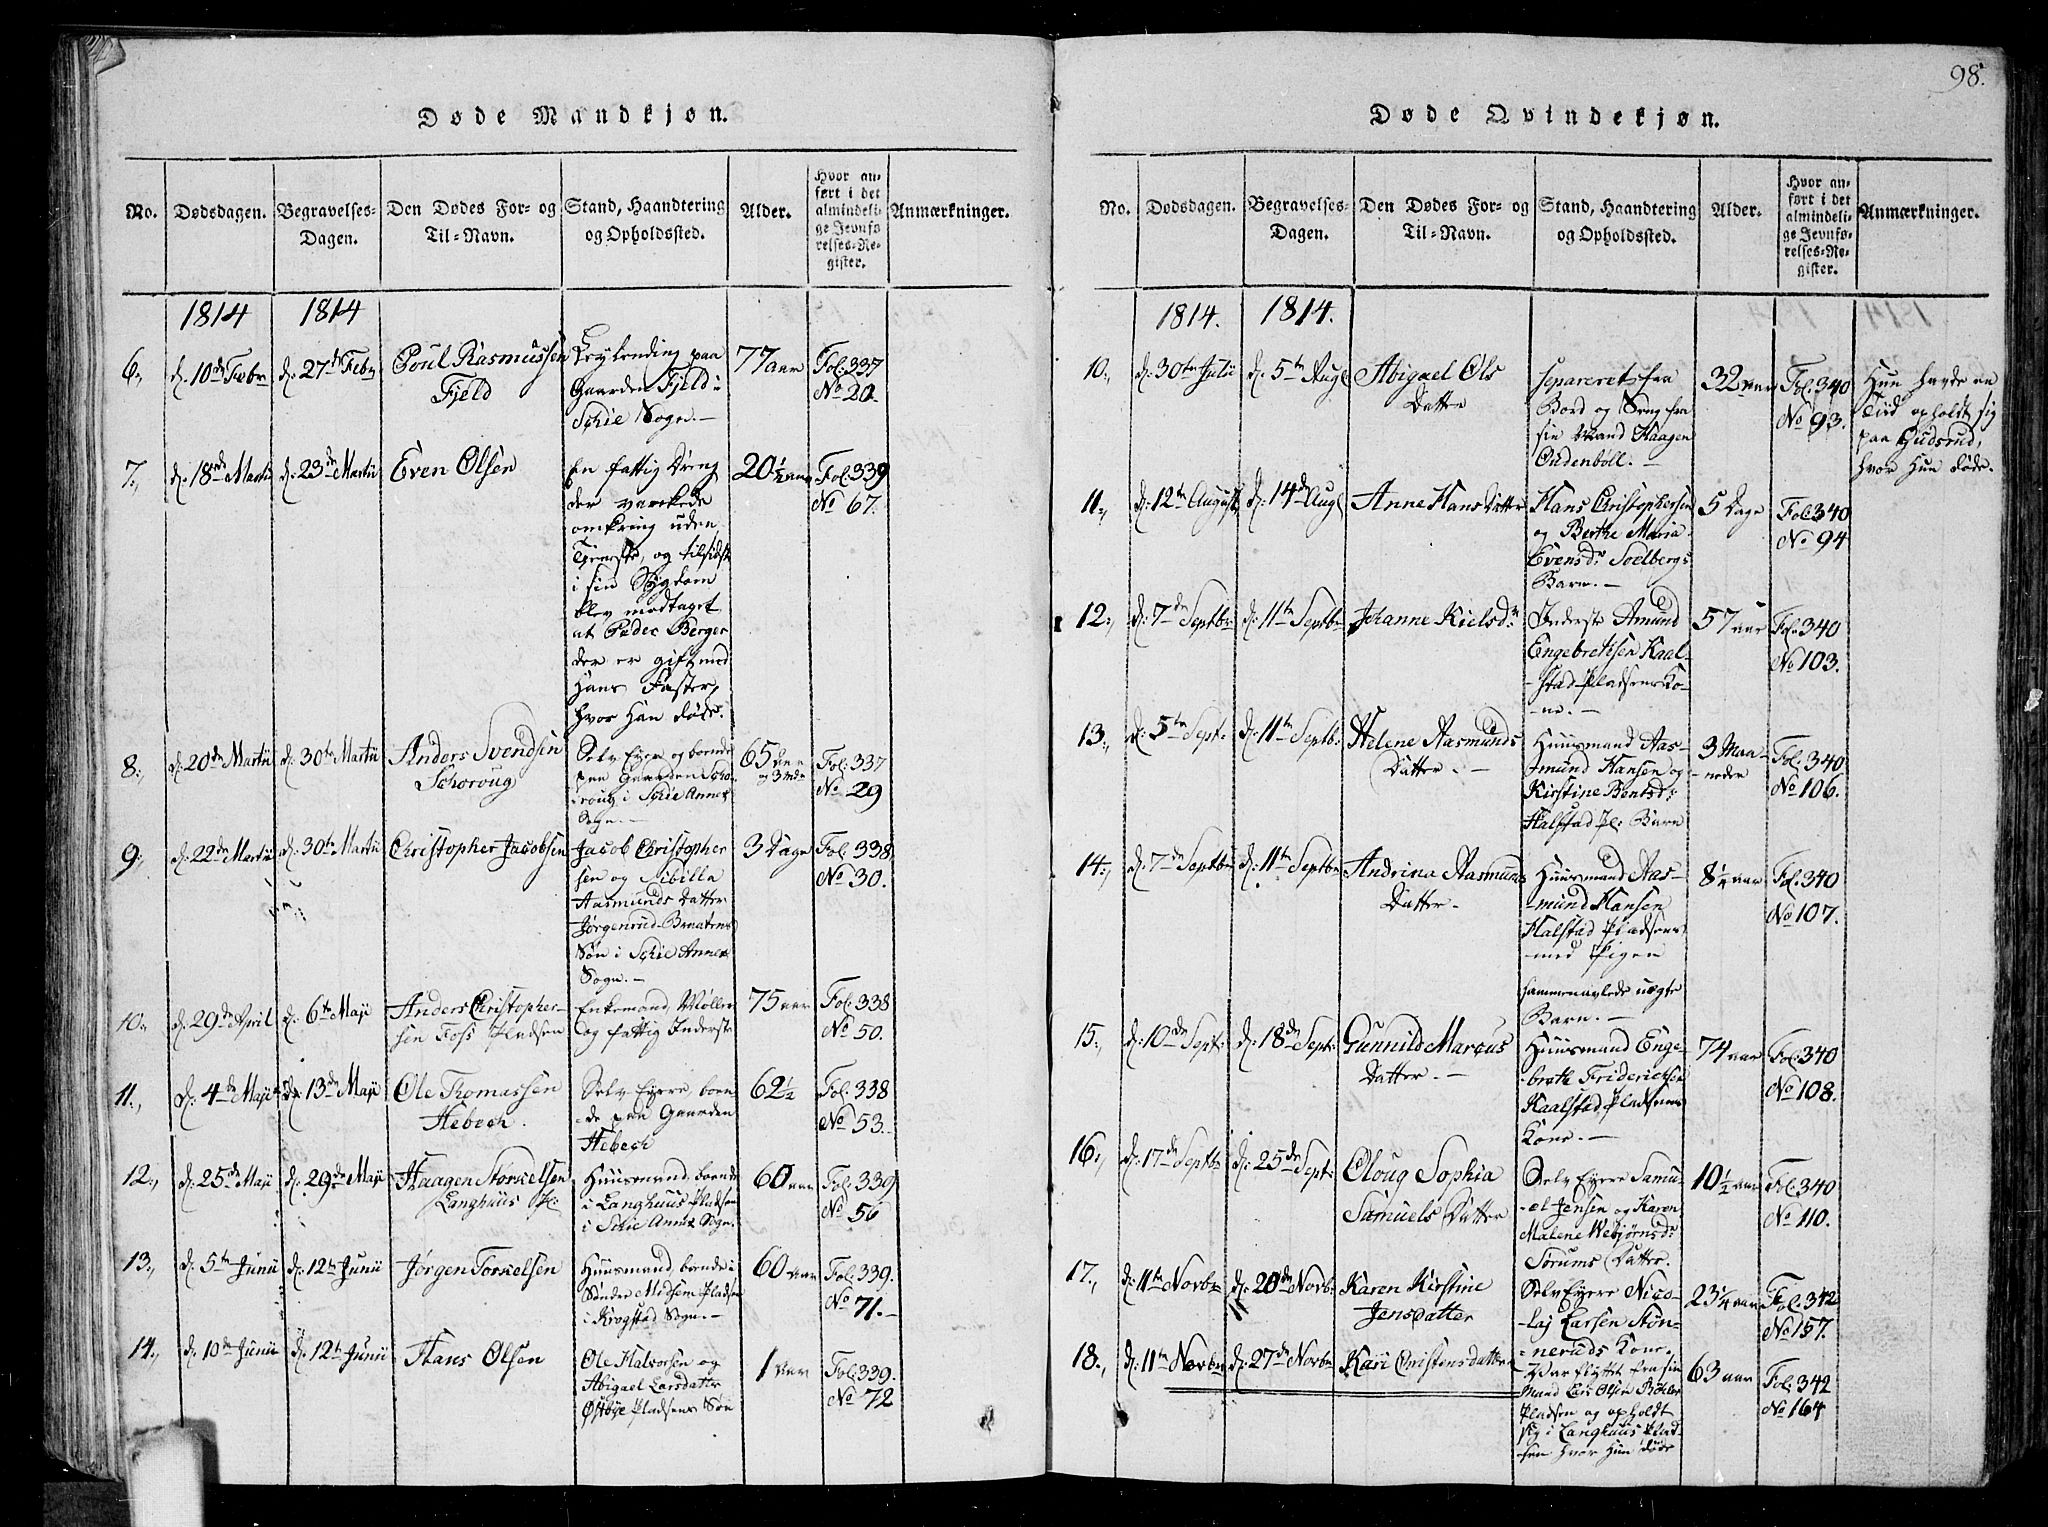 98.
Døde Mandkjøn.
No.
Dødsdagen.
Begravelses-
Dagen.
Den Dødes For- og
Til-Navn.
Stand, Haandtering
og Opholdssted.
Alder.
Hvor an-
ført i det
almindeli-
ge Jevnfø-
relses-Re-
gister.
Anmærkninger.
1814 1814
6., d. 10de Febr d. 27de Febr
Poul Rasmussen
Fjeld
Leylending paa
Gaarden Fjeld i
Schie Sogn.-
77 aar
Fol. 337
No 20.
7., d. 18de Martii d. 23de Martii
Even Olsen
En fattig Dreng
der vankede
omkring uden
Tjeneste, og tilsidst
i sin Sygdom
blev modtaget
at Peder Berger
der er gift med
Hans Faster,
hvor Han døde.
20½ aar
Fol. 339
No 67.
8., d. 20de Martii d. 30te Martii
Anders Svendsen
Schoroug
Selv Eyer og boende
paa Gaarden Scho-
roug i Schie Annex
Sogn.-
65 aar
og 3 mdr
Fol. 337
No 29
9., d. 22de Martii d. 30te Martii
Christopher Jacobsen
Jacob Christopher
sen og Sibilla
Aasmunds Datter
Jørgenrud-Braatens
Søn i Schie Annex
Sogn.-
3 Dage
Fol. 338
No 30.
10., d. 29de April d. 6te Maji
Anders Christopher-
sen Foss Pladsen
Enkemand, Møller
og fattig Inderste
75 aar
Fol. 338
No 50.
11., d. 4de Maji d. 13de Maji
Ole Thomassen
Hebech.
Selv Eyere, boen-
de paa Gaarden
Hebech
62½
Fol. 338
No 53.
12., d. 25de Maji d. 29de Maji
Haagen Torkelsen
Langhuus Pl:
Huusmand, boende
i Langhuus Pladsen
i Schie Annex Sogn.
60 aar
Fol. 339
No 56
13., d. 5te Junii d. 12te Junii
Jørgen Torkelsen
Huusmand, boende i
Søndre Midsem Pladsen
i Krogstad Sogn.-
60 aar
Fol. 339.
No 71.-
14., d. 10de Junii d. 12te Junii
Hans Olsen
Ole Halvorsen og
Abigael Larsdatter
Østbye Pladsens Søn
1 aar
Fol. 339.
No 72
Døde Qvindekjøn.
No.
Dødsdagen.
Begravelses-
Dagen.
Den Dødes For- og
Til-Navn.
Stand, Haandtering
og Opholdssted.
Alder.
Hvor an-
ført i det
almindeli-
ge Jevnfø-
relses-Re-
gister.
Anmærkninger.
1814. 1814.
10., d. 30te Julii d. 5te Aug
Abigael Ols
Datter
separeret fra
Bord og Seng fra
sin Mand Haagen
Oudenböll.-
32 aar
Fol. 340
No 93.
Hun havde en
Tiid opholdt sig
paa Gudsrud,
hvor Hun døde.
11., d. 12te August d. 14de Aug
Anne Hans Datter
Hans Christophersen
og Berthe Maria
Evensdr Soelbergs
Barn.-
5 Dage
Fol. 340
No 94
12., d. 7de Septbr d. 11te Septbr
Johanne Kielsdr
Inderste Amund
Engebretsen Kaal-
stad Pladsens Ko-
ne.-
57 aar
Fol. 340
No 103.
13., d. 5te Sept: d. 11te Septb:
Helene Aasmunds
Datter.-
Huusmand Aas-
mund Hansen og
Kirstine Bentsd:
Halstad Pl: Barn
3 Maa-
neder
Fol. 340
No 106.
14., d. 7de Septbr d. 11te Septbr
Andrina Aasmunds
Datter.
Huusmand Aas-
mund Hansen
Halstad Pladsens
med Pigen
sammenavlede uægte
Barn.-
8¼ aar
Fol. 340
No 107.
15., d. 10de Sept: d. 18de Sept:
Gunnild Marcus
Datter.-
Huusmand Enge-
breth Friderichsen
Kaalstad Pladsens
Kone.-
74 aar
Fol. 340
No 108.
16., d. 17de Septb d. 25de Sept:
Oloug Sophia
Samuels Datter
Selv Eyere Samu-
el Jensen og Karen
Malene Webjørnsd:
Sørums Datter.
10½ aar
Fol. 340
No 110.
17., d. 11te Novbr d. 20de Novb:
Karen Kirstine
Jensdatter
Selv Eyere Nico-
laj Larsen Støn-
neruds Kone.
23¼ aar
Fol. 342
No 157.
18., d. 11te Novbr d. 27de Novbr
Kari Christensdatter
Var flyttet fra sin
Mand Lars Olsen Böhler
Pladsen og opholdt
sig i Langhuus Plad-
sen hvor Hun døde
63 aar
Fol. 342
No 164